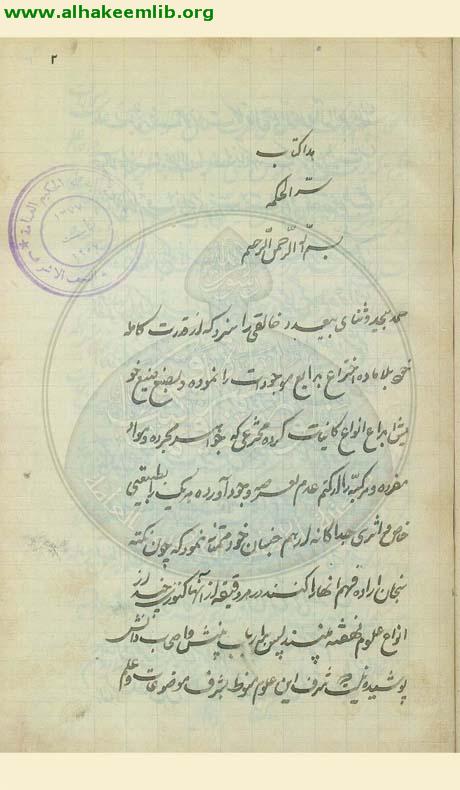 www.alhakeemlib.org
٢
هذا کتاب
سرّ الحکمه
بسم الله الرّحمن الرّحیم
حمد بیحد و ثنای بیعدد خالقی را سزد که از قدرت کامله
خود بلا ماده اختراع بدایع موجودات را نموده و بصنع منیع خو
یش ابداع انواع کاینات کرده مخترعی که جواهر مجرده و مواد
مفرده و مرکبه را از کتم عدم بعرصه وجود آورده هر یک را بطبیعتی
خاص و اثری جداگانه از هم جنسان خود ممتاز نمود که چون نکته
سنجان اراده فهم آنها را کنند در هر دقیقه از آنها کنوزی چند از
انواع علوم نهفته بینند پس بر ارباب بینش و اصحاب دانش
پوشیده نیست که شرف این علوم منوط بشرف موضوعات و علم